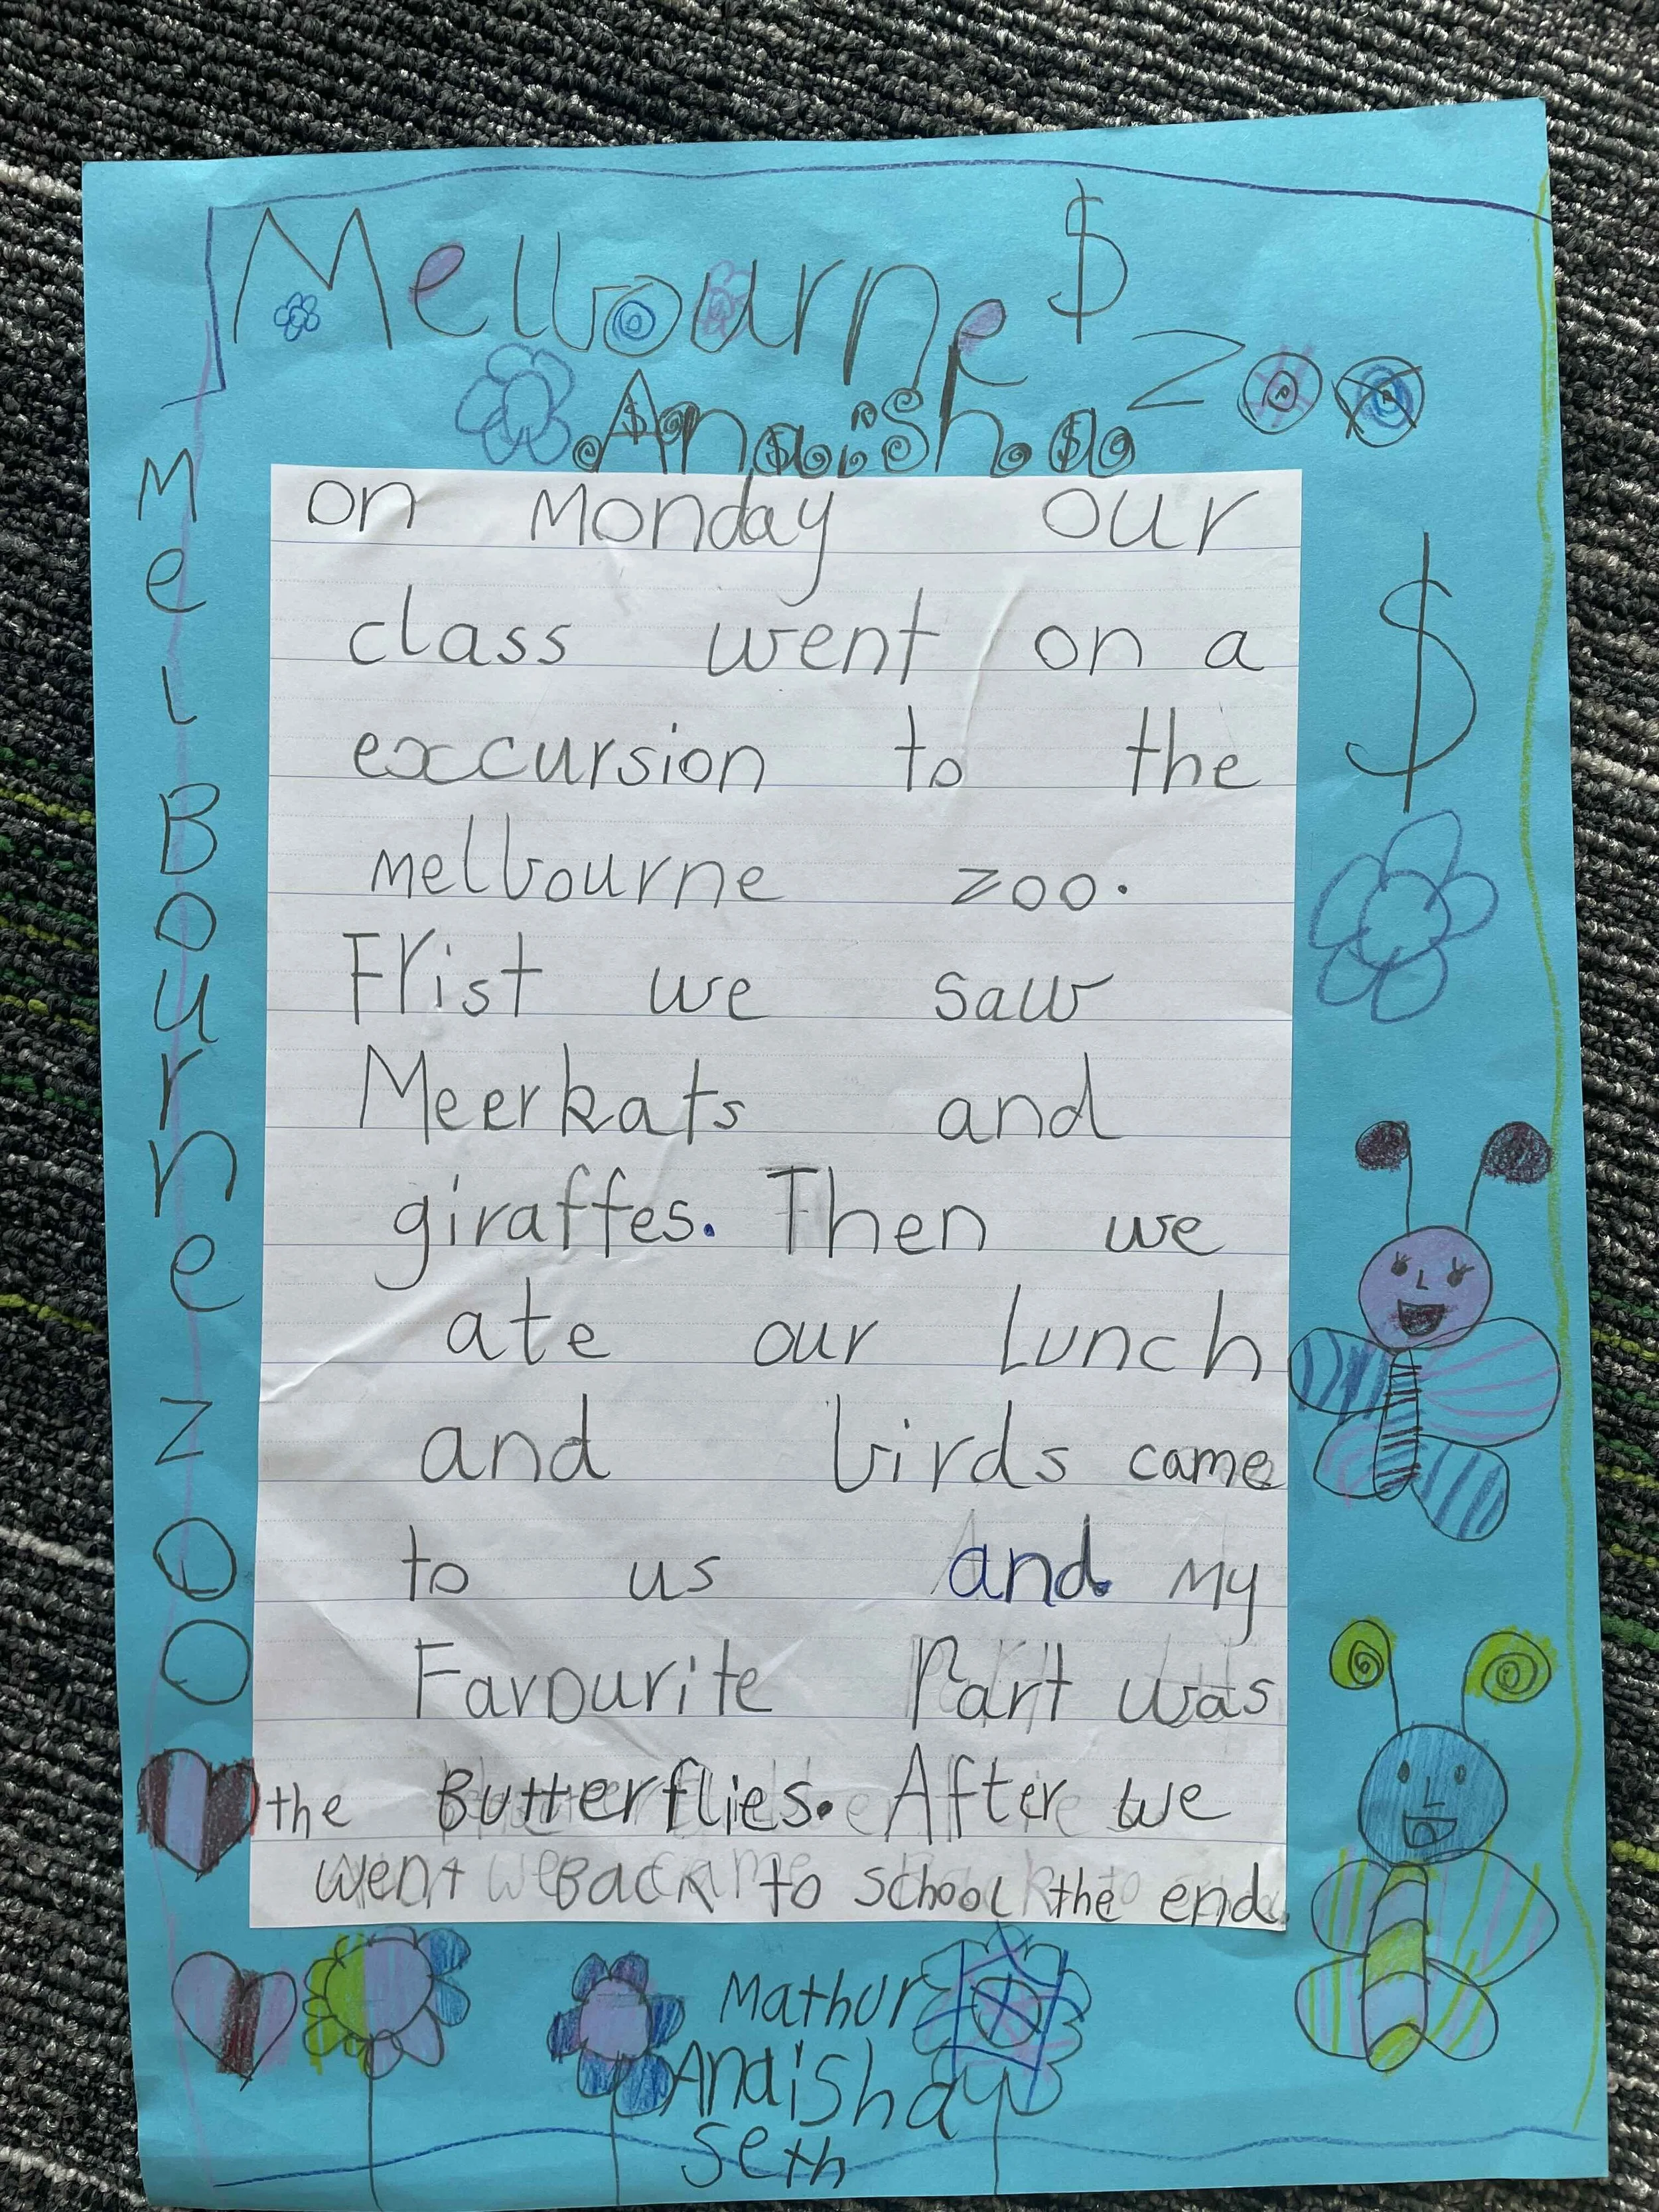 Melbourne $
Zoo
Anaisha
on Monday our
class went on a
excursion to the
melbourne zoo.
Frist we saw
Meerkats and
giraffes. Then we
ate our lunch
and birds came
to us and. My
Favourite Part was
the Butterflies. After we
went Back to school the end.
MelBourne zoo
$
Mathur
Anaisha
Seth